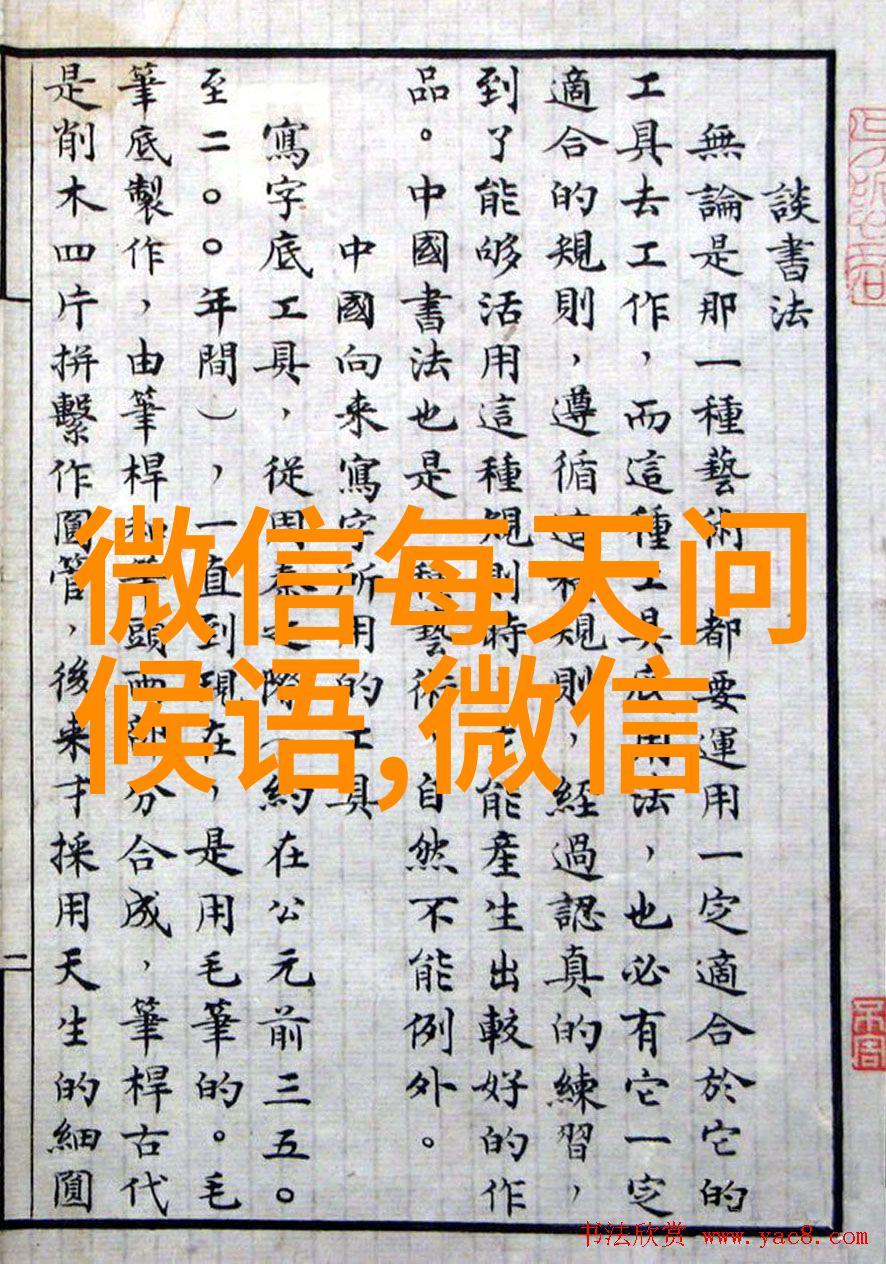 談書法
無論是那一種藝術 都要運用一定適合於它的
工具去工作，而這種工具底用法，也必有它一定
適合的規則，遵循這種規則，經過認真的練習，
到了能够活用這種規則時 才能產生出較好的作
品。中國書法也是一種藝術，自然不能例外。
中國向来寫字所用的工具
寫字底工具，從周秦之際（約在公元前三五〇
至二〇〇年間），一直到現在，是用毛筆的。毛
筆底製作，由筆桿和筆頭兩部分合成，筆桿古代
是削木四片拼繫作圓管，後来才採用天生的細圓
二
微信每天问
候语,微信
书法欣赏 www.yac8.com